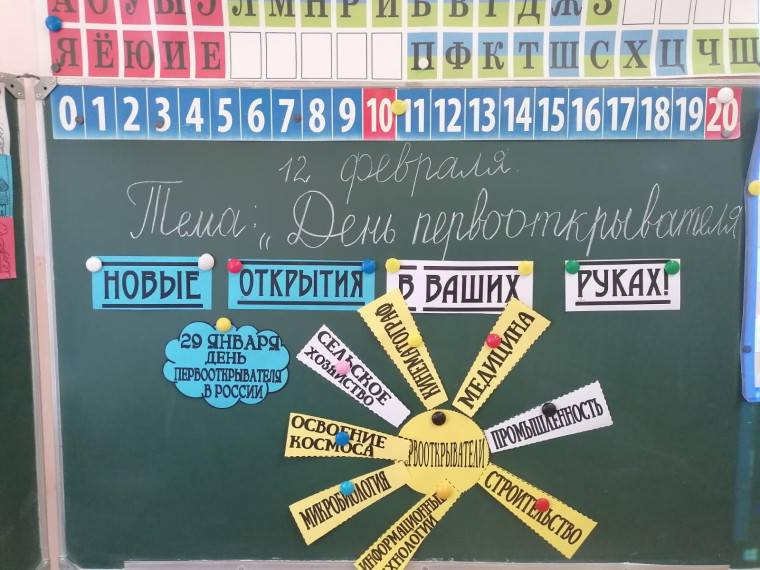 А О У Ы Э Л М Н Р Й Б В Г Д Ж З
Я Ё Ю И Е П Ф К Т Ш С Х Ц Ч Щ
0 1 2 3 4 5 6 7 8 9 10 11 12 13 14 15 16 17 18 19 20
12 февраля.
Тема: „День первооткрывателя
НОВЫЕ ОТКРЫТИЯ В ВАШИХ РУКАХ!
29 ЯНВАРЯ
ДЕНЬ
ПЕРВООТКРЫВАТЕЛЯ
В РОССИИ
СЕЛЬСКОЕ
ХОЗЯЙСТВО
КИНЕМАТОГРАФ
МЕДИЦИНА
ПРОМЫШЛЕННОСТЬ
ОСВОЕНИЕ
КОСМОСА
РВООТКРЫВАТЕЛИ
МИКРОБИОЛОГИЯ
ИНФОРМАЦИОННЫЕ
ТЕХНОЛОГИИ
СТРОИТЕЛЬСТВО